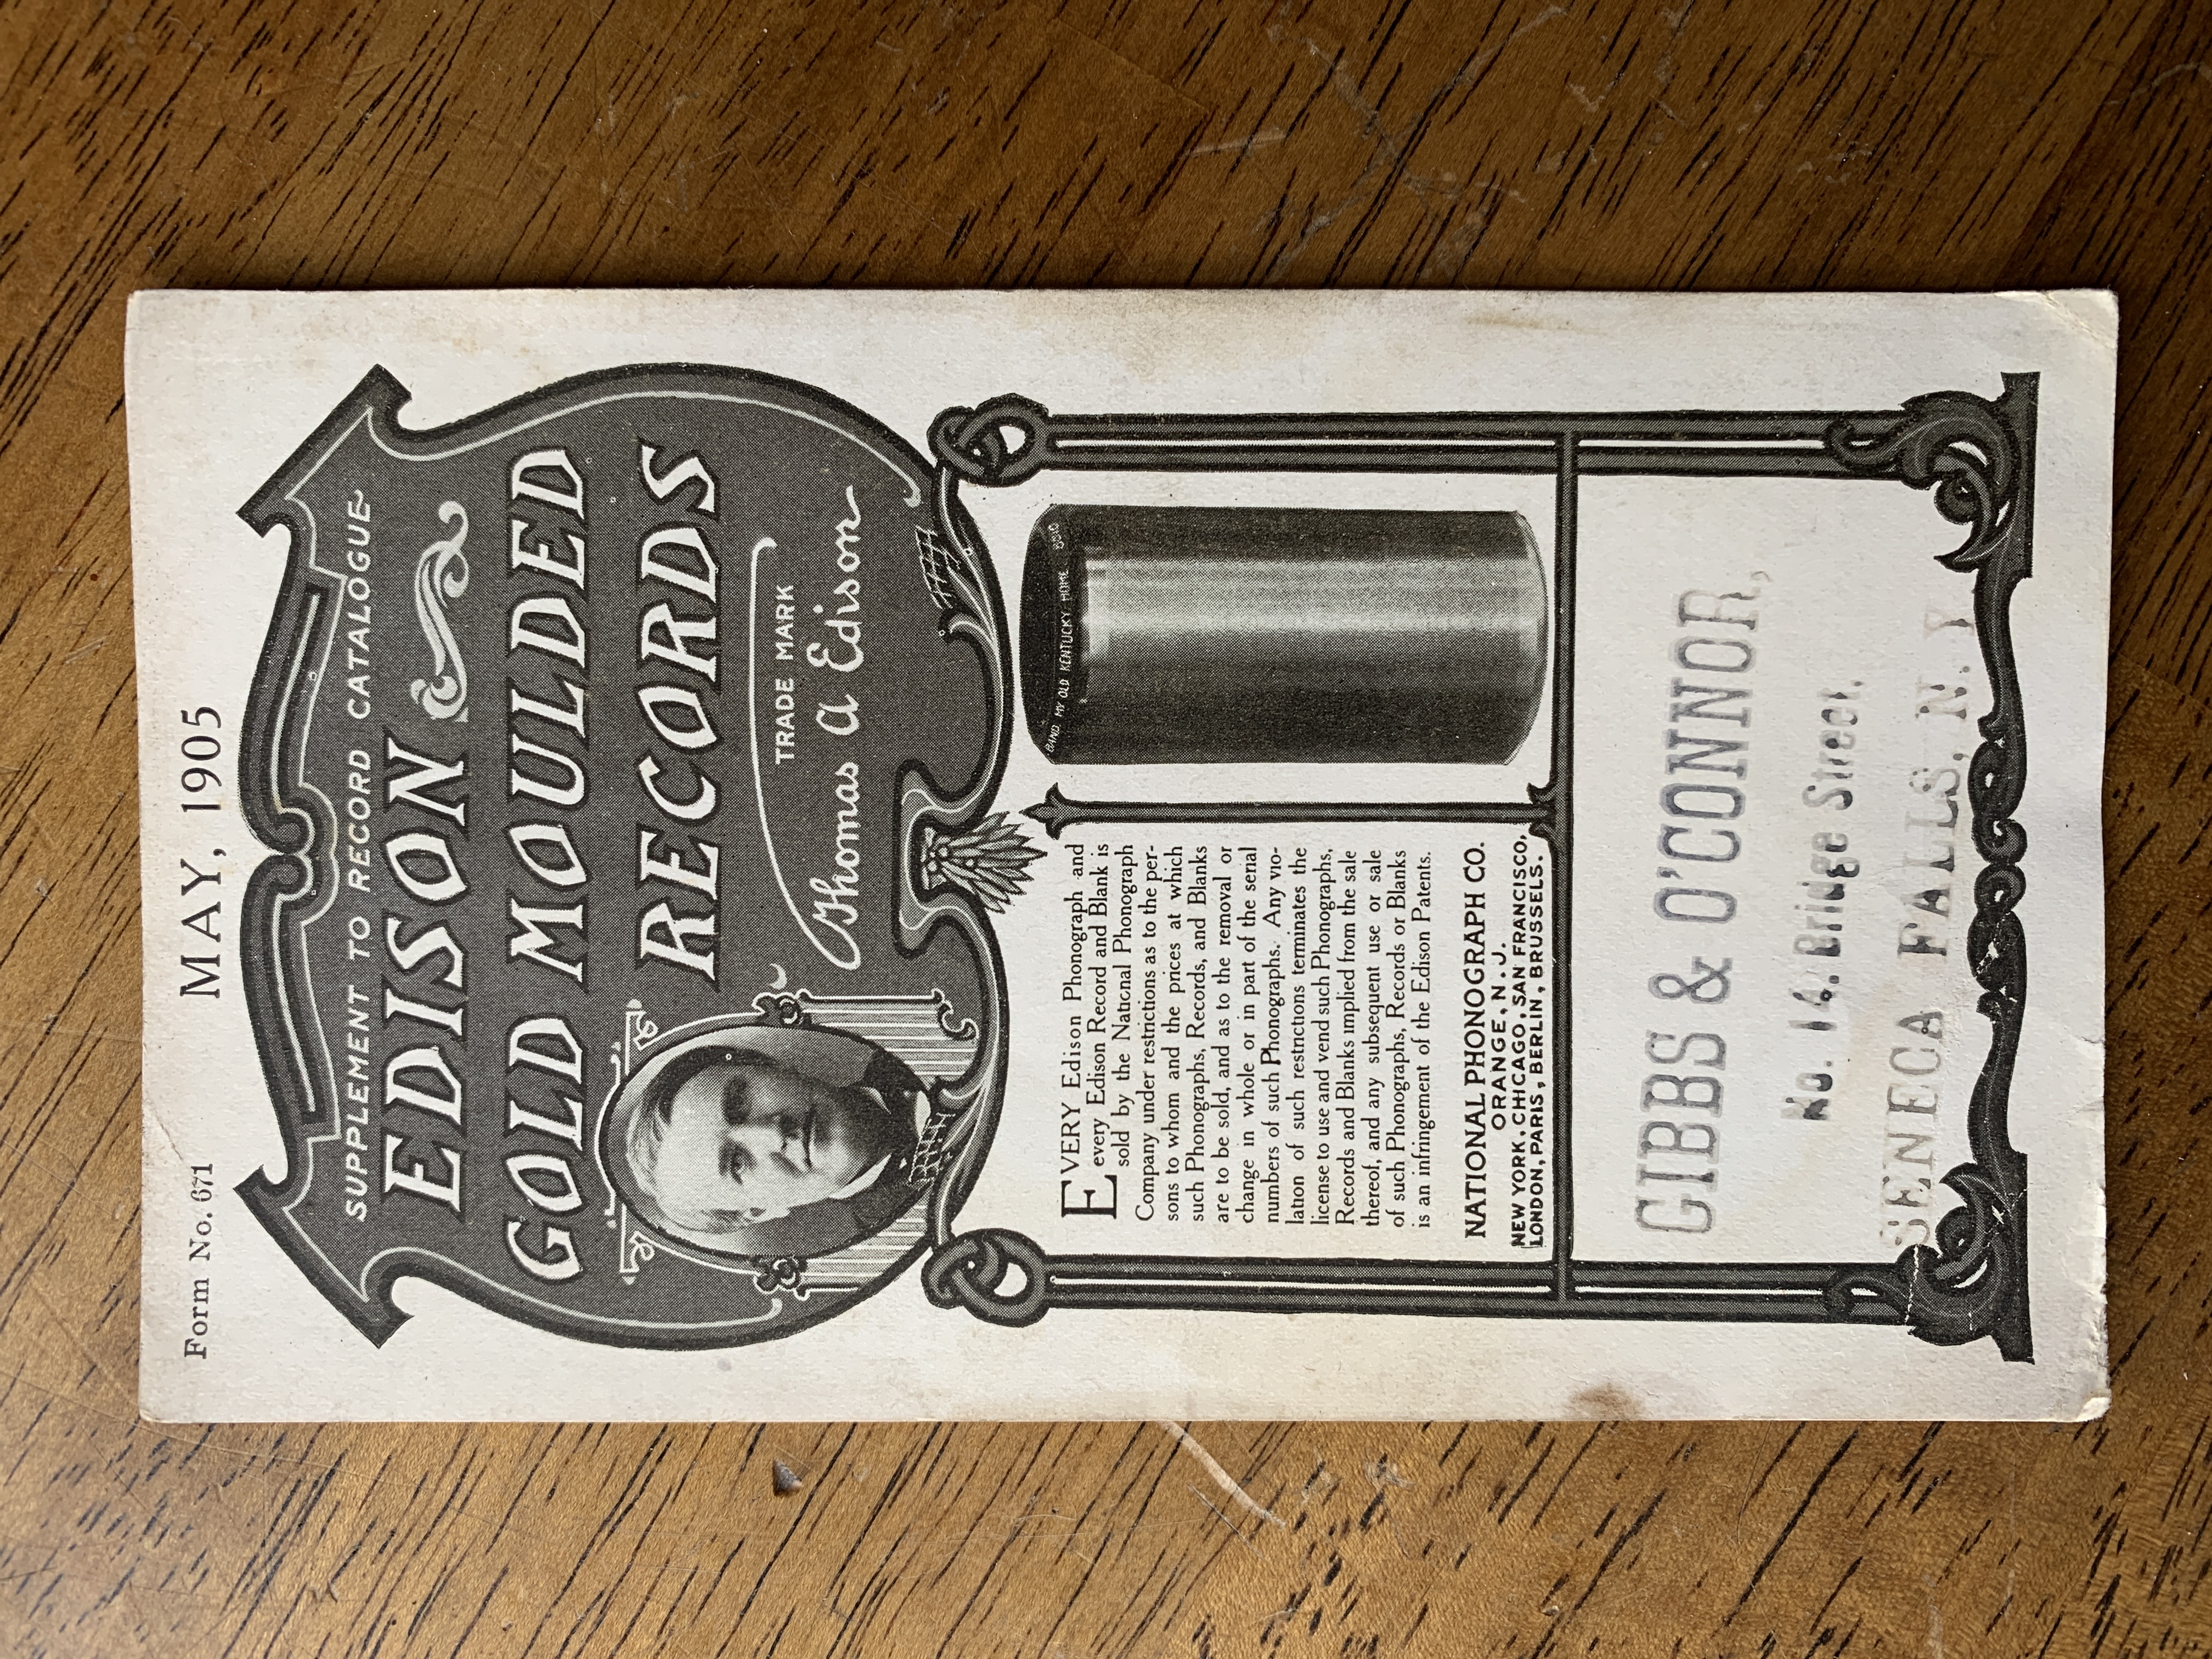 Form No. 671
MAY, 1905
SUPPLEMENT TO RECORD CATALOGUE
EDISON
GOLD MOULDED
RECORDS
TRADE MARK
Thomas A Edison
EVERY Edison Phonograph and
every Edison Record and Blank is
sold by the National Phonograph
Company under restrictions as to the per-
sons to whom and the prices at which
such Phonographs, Records, and Blanks
are to be sold, and as to the removal or
change in whole or in part of the serial
numbers of such Phonographs. Any vio-
lation of such restrictions terminates the
license to use and vend such Phonographs,
Records and Blanks implied from the sale
thereof, and any subsequent use or sale
of such Phonographs, Records or Blanks
is an infringement of the Edison Patents.
NATIONAL PHONOGRAPH CO.
ORANGE, N. J.
NEW YORK, CHICAGO, SAN FRANCISCO,
LONDON, PARIS, BERLIN, BRUSSELS.
BAND MY OLD KENTUCKY HOME
GIBBS & O'CONNOR,
No. 14. Bridge Street,
SENECA FALLS, N. Y.